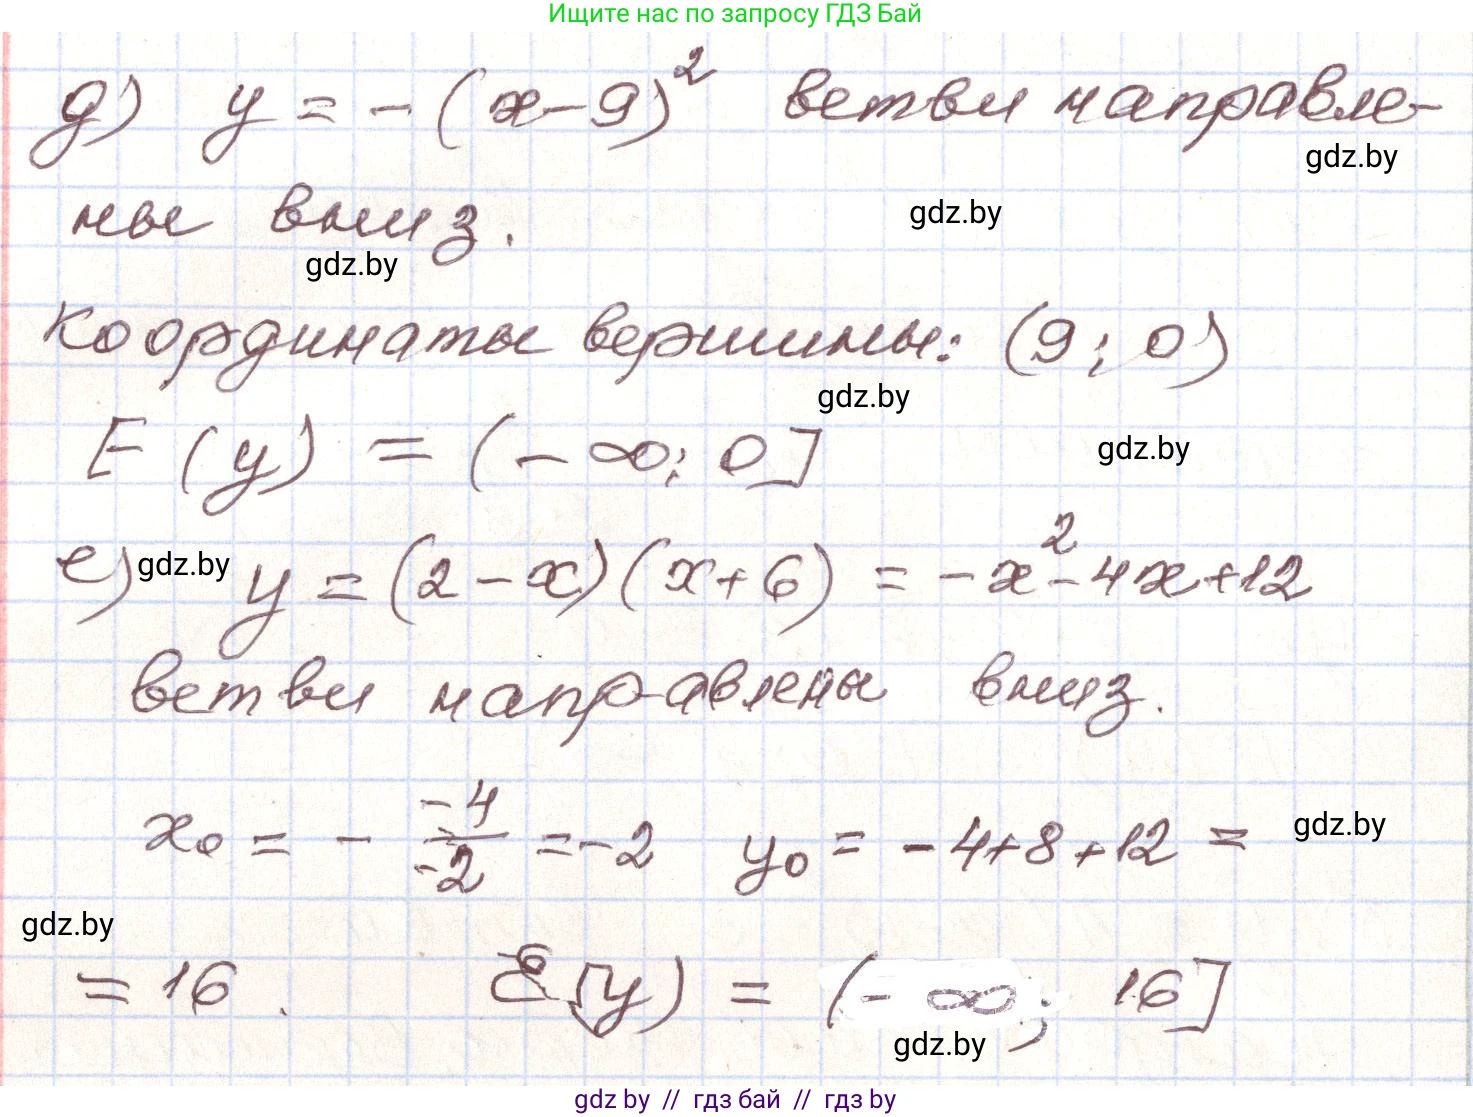 Ищите нас по запросу ГДЗ Бай
д) y = -(x-9)² ветви направле-
gdz.by
ны вниз.
gdz.by
gdz.by
Координаты вершины: (9; 0)
gdz.by
E(y) = (-∞; 0]
gdz.by
е) y = (2-x)(x+6) = -x²-4x+12
gdz.by
ветви направлены вниз.
x₀ = - -4/-2 = -2 y₀ = -4+8+12 =
gdz.by
gdz.by
= 16. E(y) = (-∞; 16]
gdz.by
gdz.by // гдз бай // гдз by